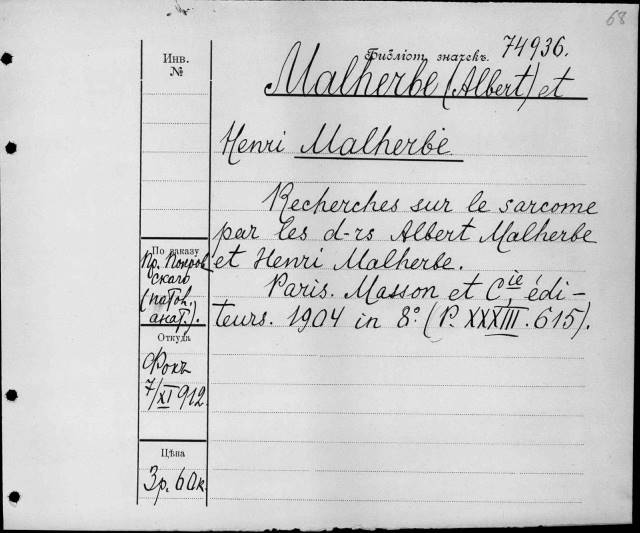 68
Инв.
№
Библіот. значекъ.
74936.
Malherbe (Albert) et
Henri Malherbe.
Recherches sur le sarcome
par les d-rs Albert Malherbe
et Henri Malherbe.
Paris. Masson et Cie, édi-
teurs. 1904 in 8º (P. XXXIII. 615).
По заказу
Пр. Покров
скаго
(патол.
анат.).
Откуда
Фокъ
7/XI 912.
Цѣна
3р. 60к.